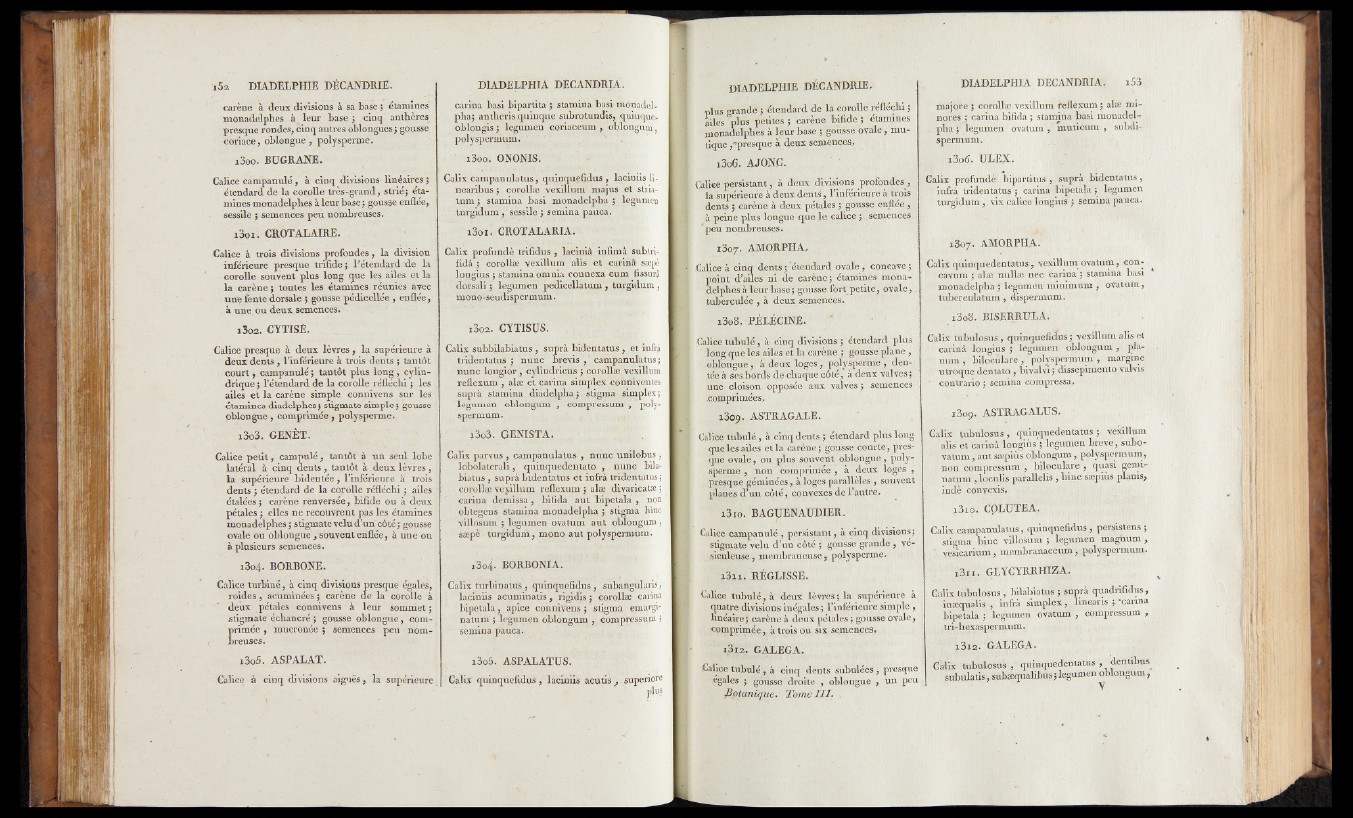 152 DIADELPHIE DÉCANDRIE.
carène à deux divisions à sa base ; étamines
monadelphes à leur base ; cinq anthères
presque rondes, cinq autres oblongues ; gousse
coriace, oblongue, polysperme.
1300. BUGRANE.
Calice campanulé, à cinq divisions linéaires ;
étendard de la corolle très-grand, strié ; éta-
mines monadelphes à leur base ; gousse enflée,
sessile ; semences peu nombreuses.
1301. CROTALAIRE.
Calice à trois divisions profondes, la division
inférieure presque trifide ; l'étendard de la
corolle souvent plus long que les ailes et la
la carène ; toutes les étamines réunies avec
une fente dorsale ; gousse pédicellée, enflée,
à une ou deux semences.
1302. CYTISE.
Calice presque à deux lèvres, la supérieure à
deux dents, l'inférieure à trois dents ; tantôt
court, campanulé ; tantôt plus long, cylin-
drique ; l'étendard de la corolle réfléchi ; les
ailes et la carène simple connivens sur les
étamines diadelphes ; stigmate simple ; gousse
oblongue, comprimée, polysperme.
1303. GENÊT.
Calice petit, campulé, tantôt à un seul lobe
latéral à cinq dents, tantôt à deux lèvres,
la supérieure bidentée, l'inférieure à trois
dents ; étendard de la corolle réfléchi ; ailes
étalées ; carène renversée, bifide ou à deux
pétales ; elles ne recouvrent pas les étamines
monadelphes ; stigmate velu d'un côté ; gousse
ovale ou oblongue, souvent enflée, à une ou
à plusieurs semences.
1304. BORBONE.
Calice turbiné, à cinq divisions presque égales,
roides, acuminées ; carène de la corolle à
deux pétales connivens à leur sommet ;
stigmate échancré ; gousse oblongue, com-
primée, mucronée ; semences peu nom-
breuses.
1305. ASPALAT.
Calice à cinq divisions aiguës, la supérieure
DIADELPHIA DECANDRIA.
carina basi bipartita ; stamina basi monadel-
pha ; antheris quinque subrotundis, quinque-
oblongis ; legumen coriaceum, oblongum,
polyspermum.
1300. ONONIS.
Calix campanulatus, quinquefidus, laciniis li-
nearibus ; corollæ vexillum majus et stria-
tum ; stamina basi monadelpha ; legumen
turgidum, sessile ; semina pauca.
1301. CROTALARIA.
Calix profundè trifidus, laciniâ infimâ subtri-
fidâ ; corollæ vexillum alis et carinâ sæpè
longius ; stamina omnia connexa cum fissurâ
dorsali ; legumen pedicellatum, turgidum,
mono-seudispermum.
1302. CYTISUS.
Calix subbilabiatus, suprà bidentatus, et infrà
tridentatus ; nunc brevis, campanulatus ;
nunc longior, cylindricus ; corollæ vexillum
reflexum, alæ et carina simplex conniventes
suprà stamina diadelpha ; stigma simplex ;
legumen oblongum, compressum, poly-
spermum.
1303. GENISTA.
Calix parvus, campanulatus, nunc unilobus,
lobolaterali, quinquedentato, nunc bila-
biatus, suprà bidentatus et infrà tridentatus ;
corollæ vexillum reflexum ; alæ divaricatæ ;
carina demissa, bifida aut bipetala, non
obtegens stamina monadelpha ; stigma hinc
villosum ; legumen ovatum aut oblongum,
sæpè turgidum, mono aut polyspermum.
1304. BORBONIA.
Calix turbinatus, quinquefidus, subangularis,
laciniis acuminatis, rigidis ; corollæ carina
bipetala, apice connivens ; stigma emargi-
natum ; legumen oblongum, compressum ;
semina pauca.
1305. ASPALATUS.
Calix quinquefidus, laciniis acutis, superiore
plus
DIADELPHIE DÉCANDRIE.
plus grande ; étendard de la corolle réfléchi ;
ailes plus petites ; carène bifide ; étamines
monadelphes à leur base ; gousse ovale, mu-
tique, presque à deux semences.
1306. AJONC.
Calice persistant, à deux divisions profondes,
la supérieure à deux dents, l'inférieure à trois
dents ; carène à deux pétales ; gousse enflée,
à peine plus longue que le calice ; semences
peu nombreuses.
1307. AMORPHA.
Calice à cinq dents ; étendard ovale, concave ;
point d'ailes ni de carène ; étamines mona-
delphes à leur base ; gousse fort petite, ovale,
tuberculée, à deux semences.
1308. PÉLÉCINE.
Calice tubulé, à cinq divisions ; étendard plus
long que les ailes et la carène ; gousse plane,
oblongue, à deux loges, polysperme, den-
tée à ses bords de chaque côté, à deux valves ;
une cloison opposée aux valves ; semences
comprimées.
1309. ASTRAGALE.
Calice tubulé, à cinq dents ; étendard plus long
que les ailes et la carène ; gousse courte, pres-
que ovale, ou plus souvent oblongue, poly-
sperme, non comprimée, à deux loges,
presque géminées, à loges parallèles, souvent
planes d'un côté, convexes de l'autre.
1310. BAGUENAUDIER.
Calice campanulé, persistant, à cinq divisions ;
stigmate velu d'un côté ; gousse grande, vé-
siculeuse, membraneuse, polysperme.
1311. RÉGLISSE.
Calice tubulé, à deux lèvres ; la supérieure à
quatre divisions inégales ; l'inférieure simple,
linéaire ; carène à deux pétales ; gousse ovale,
comprimée, à trois ou six semences.
1312. GALEGA.
Calice tubulé, à cinq dents subulées, presque
égales ; gousse droite, oblongue, un peu
Botanique. Tome III.
DIADELPHIA DECANDRIA. 153
majore ; corollæ vexillum reflexum ; alæ mi-
nores ; carina bifida ; stamina basi monadel-
pha ; legumen ovatum, muticum, subdi-
spermum.
1306. ULEX.
Calix profundè bipartitus, suprà bidentatus,
infrà tridentatus ; carina bipetala ; legumen
turgidum, vix calice longius ; semina pauca.
1307. AMORPHA.
Calix quinquedentatus, vexillum ovatum, con-
cavum ; alæ nullæ nec carina ; stamina basi
monadelpha ; legumen minimum, ovatum,
tuberculatum, dispermum.
1308. BISERRULA.
Calix tubulosus, quinquefidus ; vexillum alis et
carinâ longius ; legumen oblongum, pla-
num, biloculare, polyspermum, margine
utroque dentato, bivalvi ; dissepimento valvis
contrario ; semina compressa.
1309. ASTRAGALUS.
Calix tubulosus, quinquedentatus ; vexillum
alis et carinâ longius ; legumen breve, subo-
vatum, aut sæpiùs oblongum, polyspermum,
non compressum, biloculare, quasi gemi-
natum, loculis parallelis, hinc sæpius planis,
indè convexis.
1310. COLUTEA.
Calix campanulatus, quinquefidus, persistens ;
stigma hinc villosum ; legumen magnum,
vesicarium, membranaceum, polyspermum.
1311. GLYCYRRHIZA.
Calix tubulosus, bilabiatus ; suprà quadrifidus,
inæqualis, infrà simplex, linearis ; carina
bipetala ; legumen ovatum, compressum,
tri-hexaspermum.
1312. GALEGA.
Calix tubulosus, quinquedentatus, dentibus
subulatis, subæqualibus ; legumen oblongum,
V